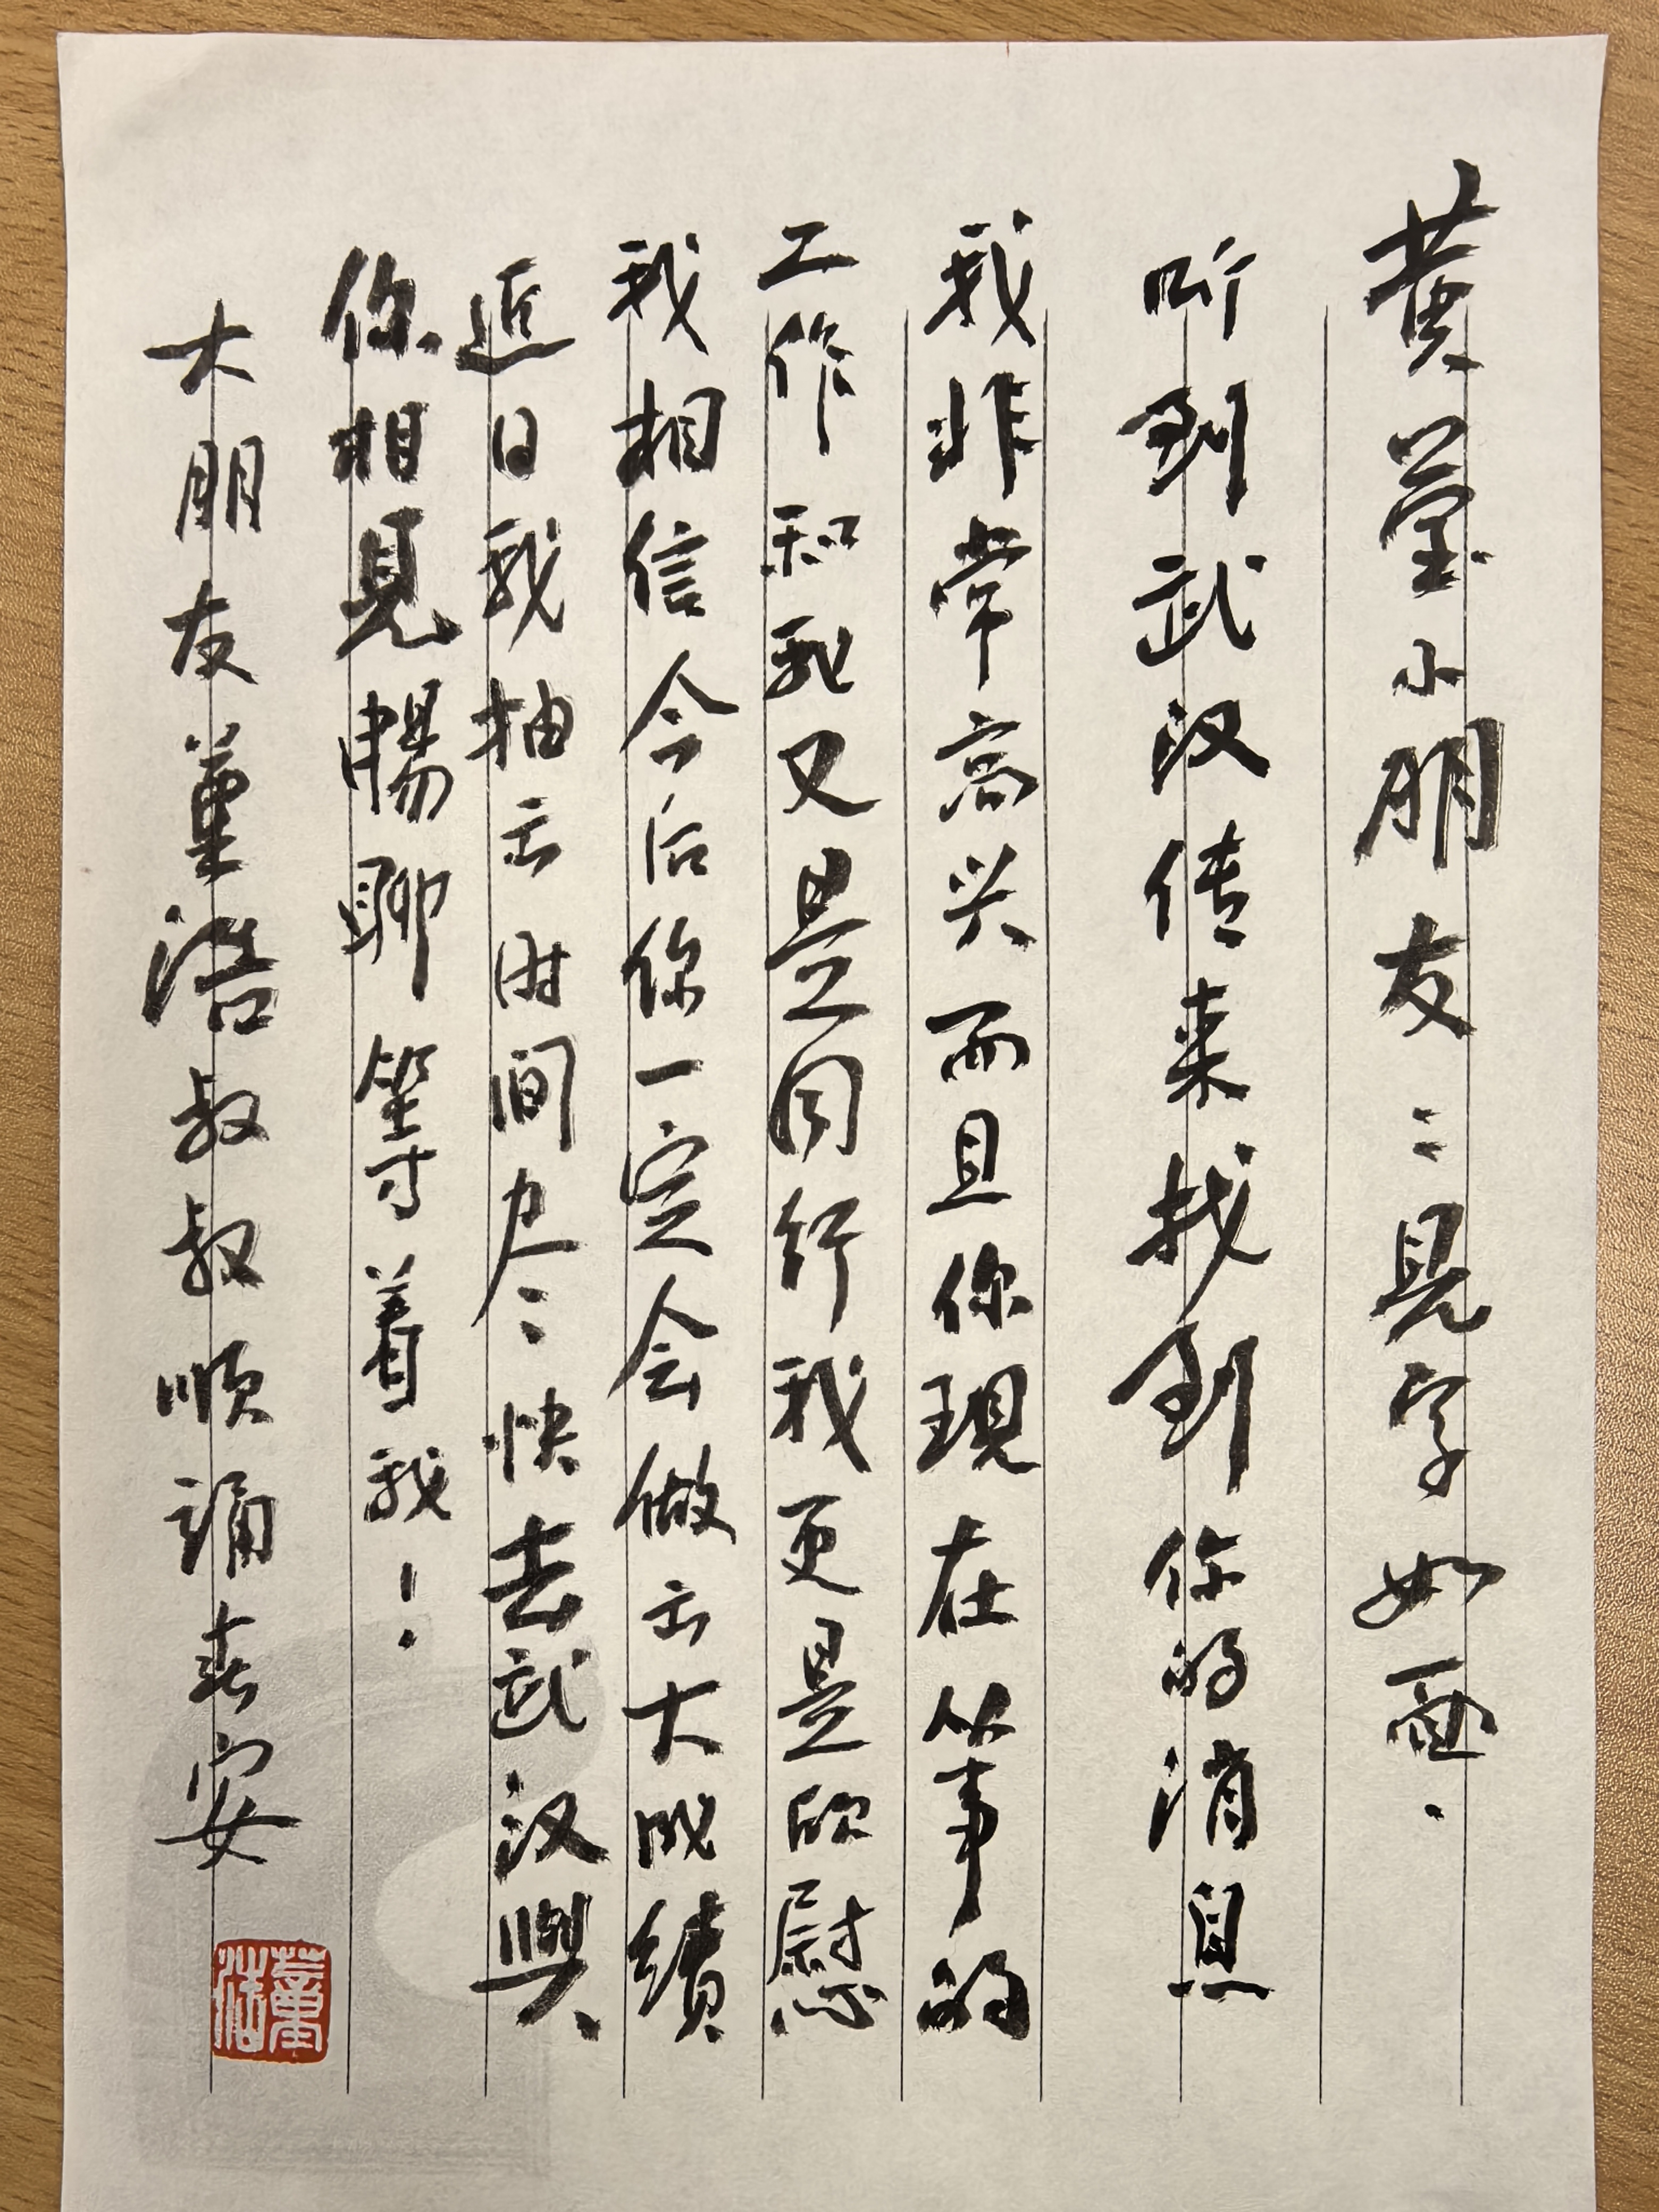 黄莹小朋友：見字如面．
听到武汉传来找到你的消息
我非常高兴而且你現在从事的
工作和我又是同行我更是欣慰
我相信今后你一定会做出大成績
近日我抽出时间尽快去武汉與
你相見暢聊等着我！
大朋友董浩叔叔順誦春安
董浩